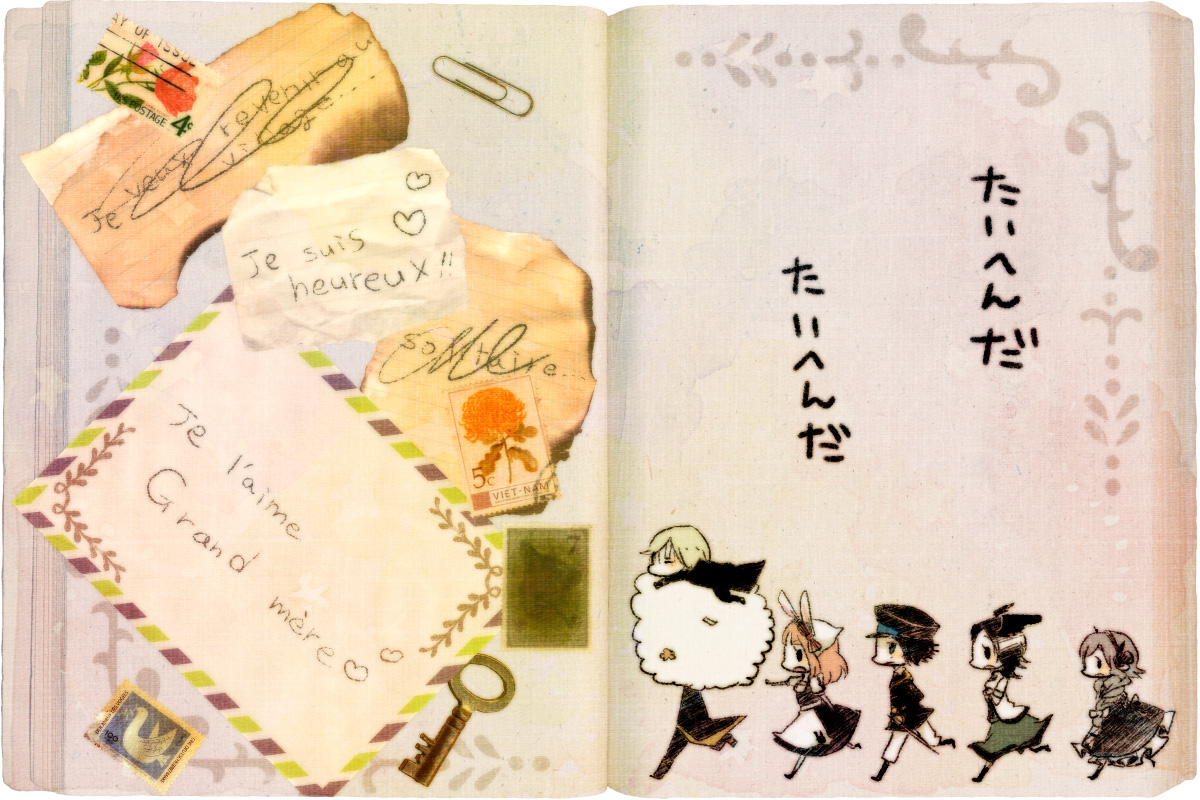 Y OF ISSU
POSTAGE
4c
Je veux revenir au
village...
Je suis
heureux!!
Solitaire...
5c
VIET-NAM
Je l'aime
Grand
mère
100
たいへんだ
たいへんだ